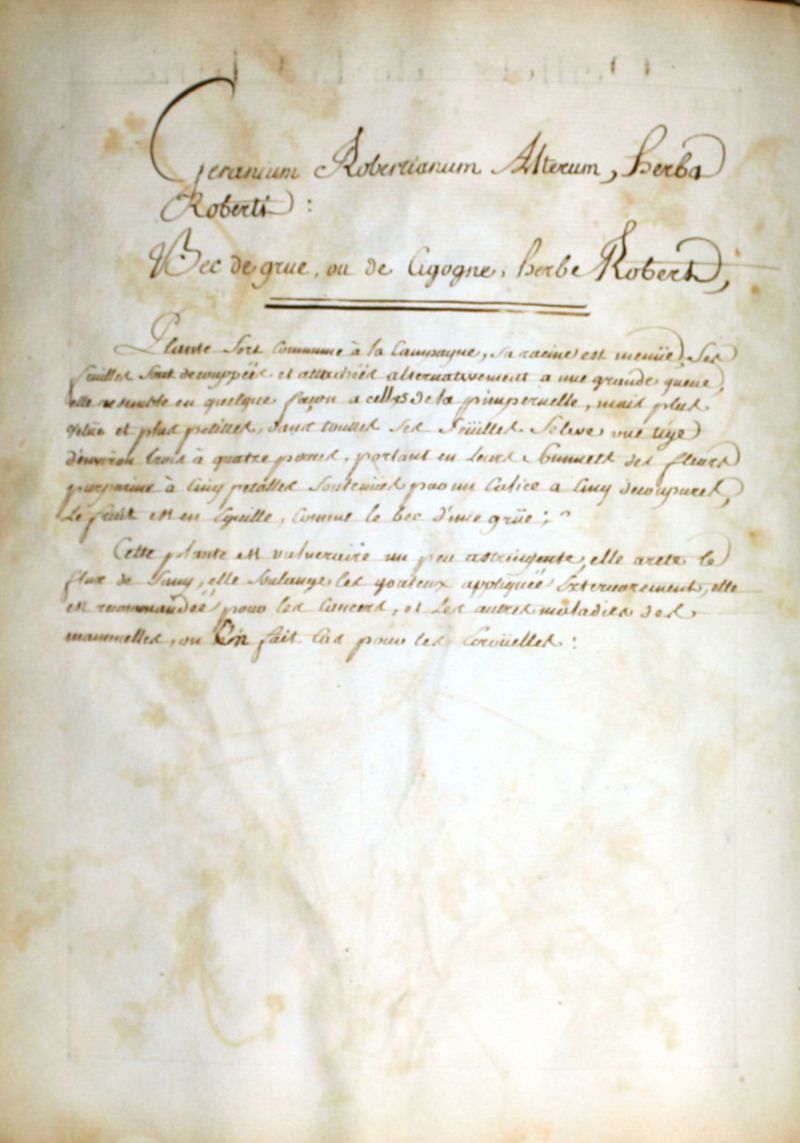 Geranium Robertianum Alterum, herba
Roberti :
Bec de grue, ou de Cigogne, herbe Robert,
Plante fort commune à la Campagne, sa racine est menüe, ses
feuilles sont decouppéés et attachéés alternativement a une grande queüe,
elle resemble en quelque façon a celles de la pimpernelle, mais plus
velüe et plus petittes, d'entre touttes ses feüilles s'eleve une tige
d'environ trois à quatre pouces, portant en leurs sommets des fleurs
purpurine à Cinq petalles soutenües par un Calice a Cinq decoupures,
Le fruit est en Eguille, comme le bec d'une grüe ;
Cette plante est vulneraire un peu astringente, elle arete le
flux de Sang, elle soulange les gouteux appliquéé Exterieurement, elle
est recommandéé pour les Cancers, et les autres maladies des
mammelles, on En fait Cas pour les Ecroüelles :